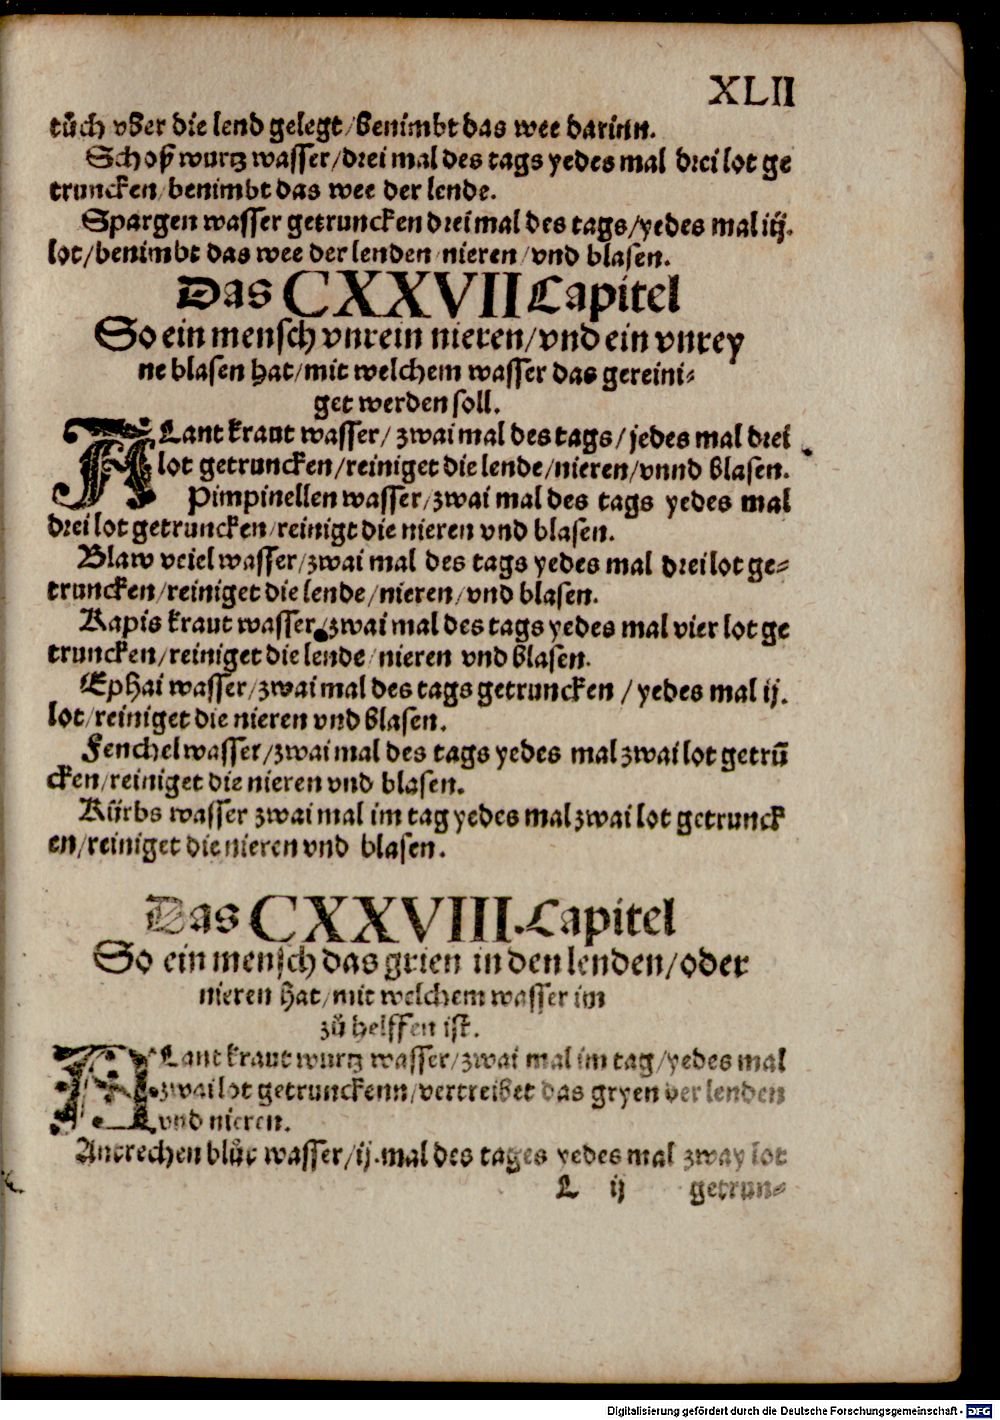 XLII
tůch vber die lend gelegt/benimbt das wee darinn.
Schoß wurtz wasser/drei mal des tags yedes mal drei lot ge
truncken/benimbt das wee der lende.
Spargen wasser getruncken drei mal des tags/yedes mal iij.
lot/benimbt das wee der lenden/nieren/vnd blasen.
Das CXXVII Capitel
So ein mensch vnrein nieren/vnd ein vnrey
ne blasen hat/mit welchem wasser das gereini-
get werden soll.
ALant kraut wasser/zwai mal des tags/jedes mal drei
lot getruncken/reiniget die lende/nieren/vnnd blasen.
Pimpinellen wasser/zwai mal des tags yedes mal
drei lot getruncken/reinigt die nieren vnd blasen.
Blaw veiel wasser/zwai mal des tags yedes mal drei lot ge-
truncken/reiniget die lende/nieren/vnd blasen.
Kapis kraut wasser/zwai mal des tags yedes mal vier lot ge
truncken/reiniget die lende/nieren vnd blasen.
Ephai wasser/zwai mal des tags getruncken/yedes mal ij.
lot/reiniget die nieren vnd blasen.
Fenchel wasser/zwai mal des tags yedes mal zwai lot getrū
cken/reiniget die nieren vnd blasen.
Kürbs wasser zwai mal im tag yedes mal zwai lot getrunck
en/reiniget die nieren vnd blasen.
Das CXXVIII. Capitel
So ein mensch das grien in den lenden/oder
nieren hat/mit welchem wasser im
zů helffen ist.
ALant kraut wurtz wasser/zwai mal im tag/yedes mal
zwai lot getrunckenn/vertreibet das gryen der lenden
vnd nieren.
Antrechen blůt wasser/ij.mal des tages yedes mal zway lot
L ij getrun-
Digitalisierung gefördert durch die Deutsche Forschungsgemeinschaft - DFG